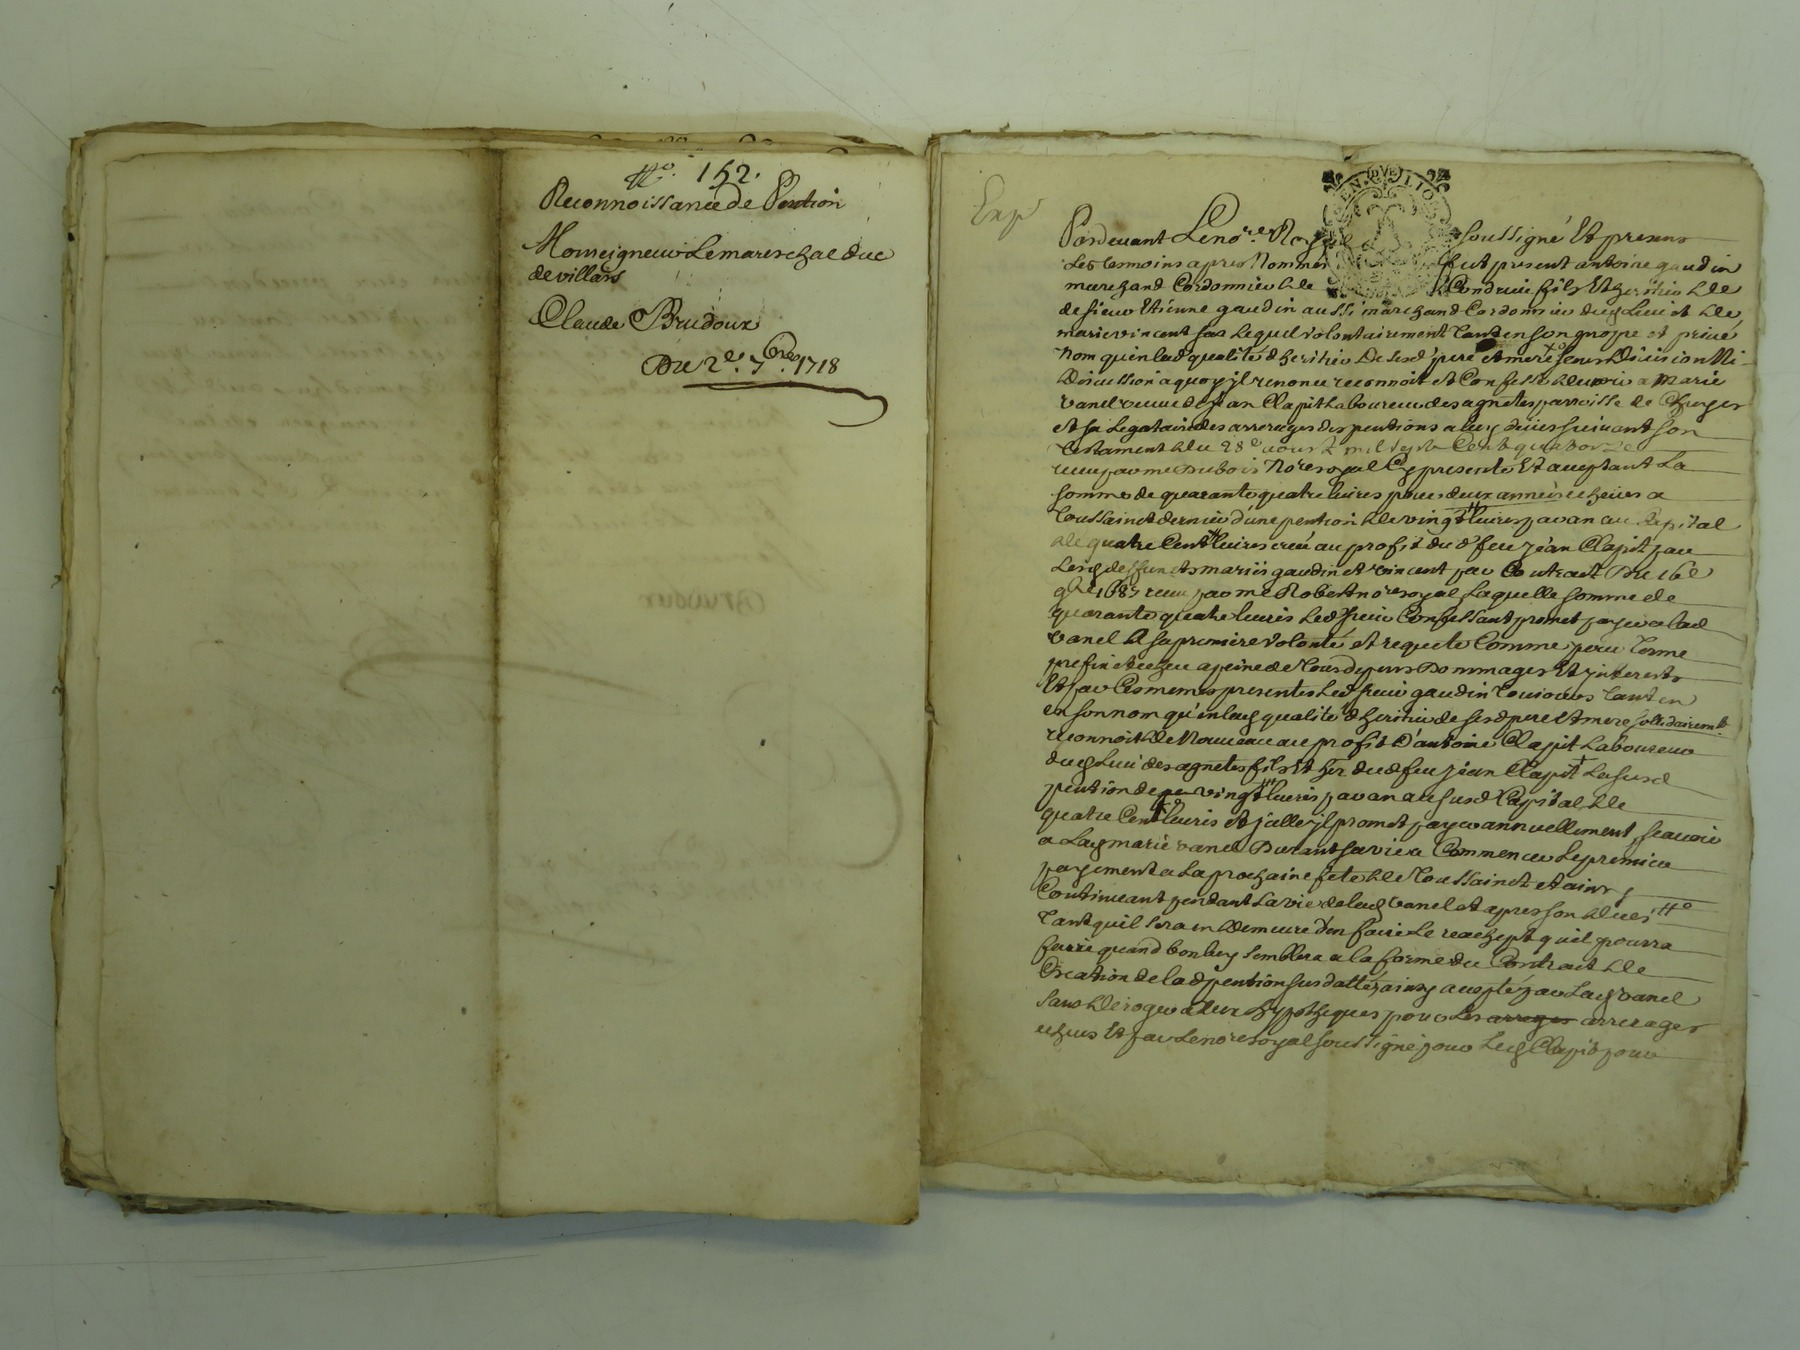 No. 152.
Reconnoissance de Pention
Monseigneur Le mareschal duc
de villars
Claude Brudoux
Du 2e. 7bre. 1718
Exp
GEN. DV LION
Pardevant Le nore. Royal soussigné Et presens
Les tesmoins apres Nommes fut present antoine gaudin
marchand Cordonnier de Condrieu fils Et heritier de
de sieur Etienne gaudin aussi marchand Cordonnier dud Lieu et de
marie vincent sa Lequel volontairement tant en son propre et privé
nom qu'en lad qualité d'heritier De sesd pere et mere sans Division Ni
Discussion a quoy il renonce reconnoit et Confesse devoir a Marie
vanel veuve de Jean Clapit Laboureur des agnetes parroisse de
et sa Legataire des arrerages des pentions a luy düies suivant son
testament du 28e aoust mil sept Cent quatorze
receu par me Dubois Nore royal Cy presente Et acceptant La
somme de quarante quatre livres pour deux années echeues a
Toussainct dernier d'une pention de vingt livres par an au Capital
de quatre Cent livres creé au profit du d feu Jean Clapit par
Lesd deffuncts mariés gaudin et vincent par Contract Du 16e
9bre 1687 receu par me Robert nore royal Laquelle somme de
quarante quatre livres Led sieur Confessant promet payer a lad
vanel A sa premiere volonté et requete Comme pour terme
prefix et echeu a peine de tous depens Dommages Et interests
Et par Ces memes presentes Led sieur gaudin toujours tant en
en son nom qu'en lad qualité d'heritier de sesd pere et mere sollidairemt.
reconnoit de Nouveau au profit D'antoine Clapit Laboureur
dud Lieu des agnetes fils Et her dud feu Jean Clapit La susd
pention de vingt livres par an au susd Capital de
quatre Cent livres et icelle il promet payer annuellement, scavoir
a Lad marie vanel Durant sa vie a Commencer Le premier
payement a La prochaine fete de Toussainct et ainsy
Continuant pendant La vie de lad vanel et apres son
tant quil sera en demeure d'en faire Le reachept quil pourra
faire quand bon luy semblera a la forme du Contract de
Creation de lad pention susdattéz ainsy accepté par Lad vanel
sans deroger a leur hypotheques pour Les arreges arrerages
echeus Et par Le nore royal soussigné pour Led Clapit pour